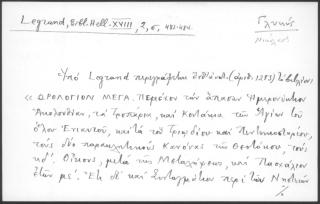 Legrand, Bibl. Hell. XVIII, 2, σ. 483-484.
Γλυκύς
Νικόλαος
Ὑπὸ Legrand περιγράφεται (ἀριθ. 1253) τὸ βιβλίον:
« ΩΡΟΛΟΓΙΟΝ ΜΕΓΑ. Περιέχον τὴν ἅπασαν Ἡμερονύκτιον
Ἀκολουθίαν, τὰ Τροπάρια, καὶ Κοντάκια τῶν Ἁγίων τοῦ
ὅλου Ἐνιαυτοῦ, καὶ τὰ τοῦ Τριῳδίου καὶ Πεντηκοσταρίου,
τοὺς δύο παρακλητικοὺς Κανόνας τῆς Θεοτόκου, τοὺς
κδ΄. Οἴκους, μετὰ τῆς Μεταλήψεως, καὶ Πασχάλιον
ἐτῶν με΄. Ἔτι δὲ καὶ Συνταγμάτιον περὶ τῶν Νηστειῶν